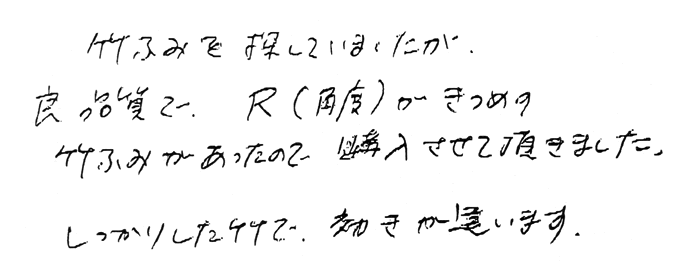 竹ふみを探していましたが、
良品質で、R(角度)がきつめの
竹ふみがあったので購入させて頂きました。
しっかりした竹で、効きが違います。